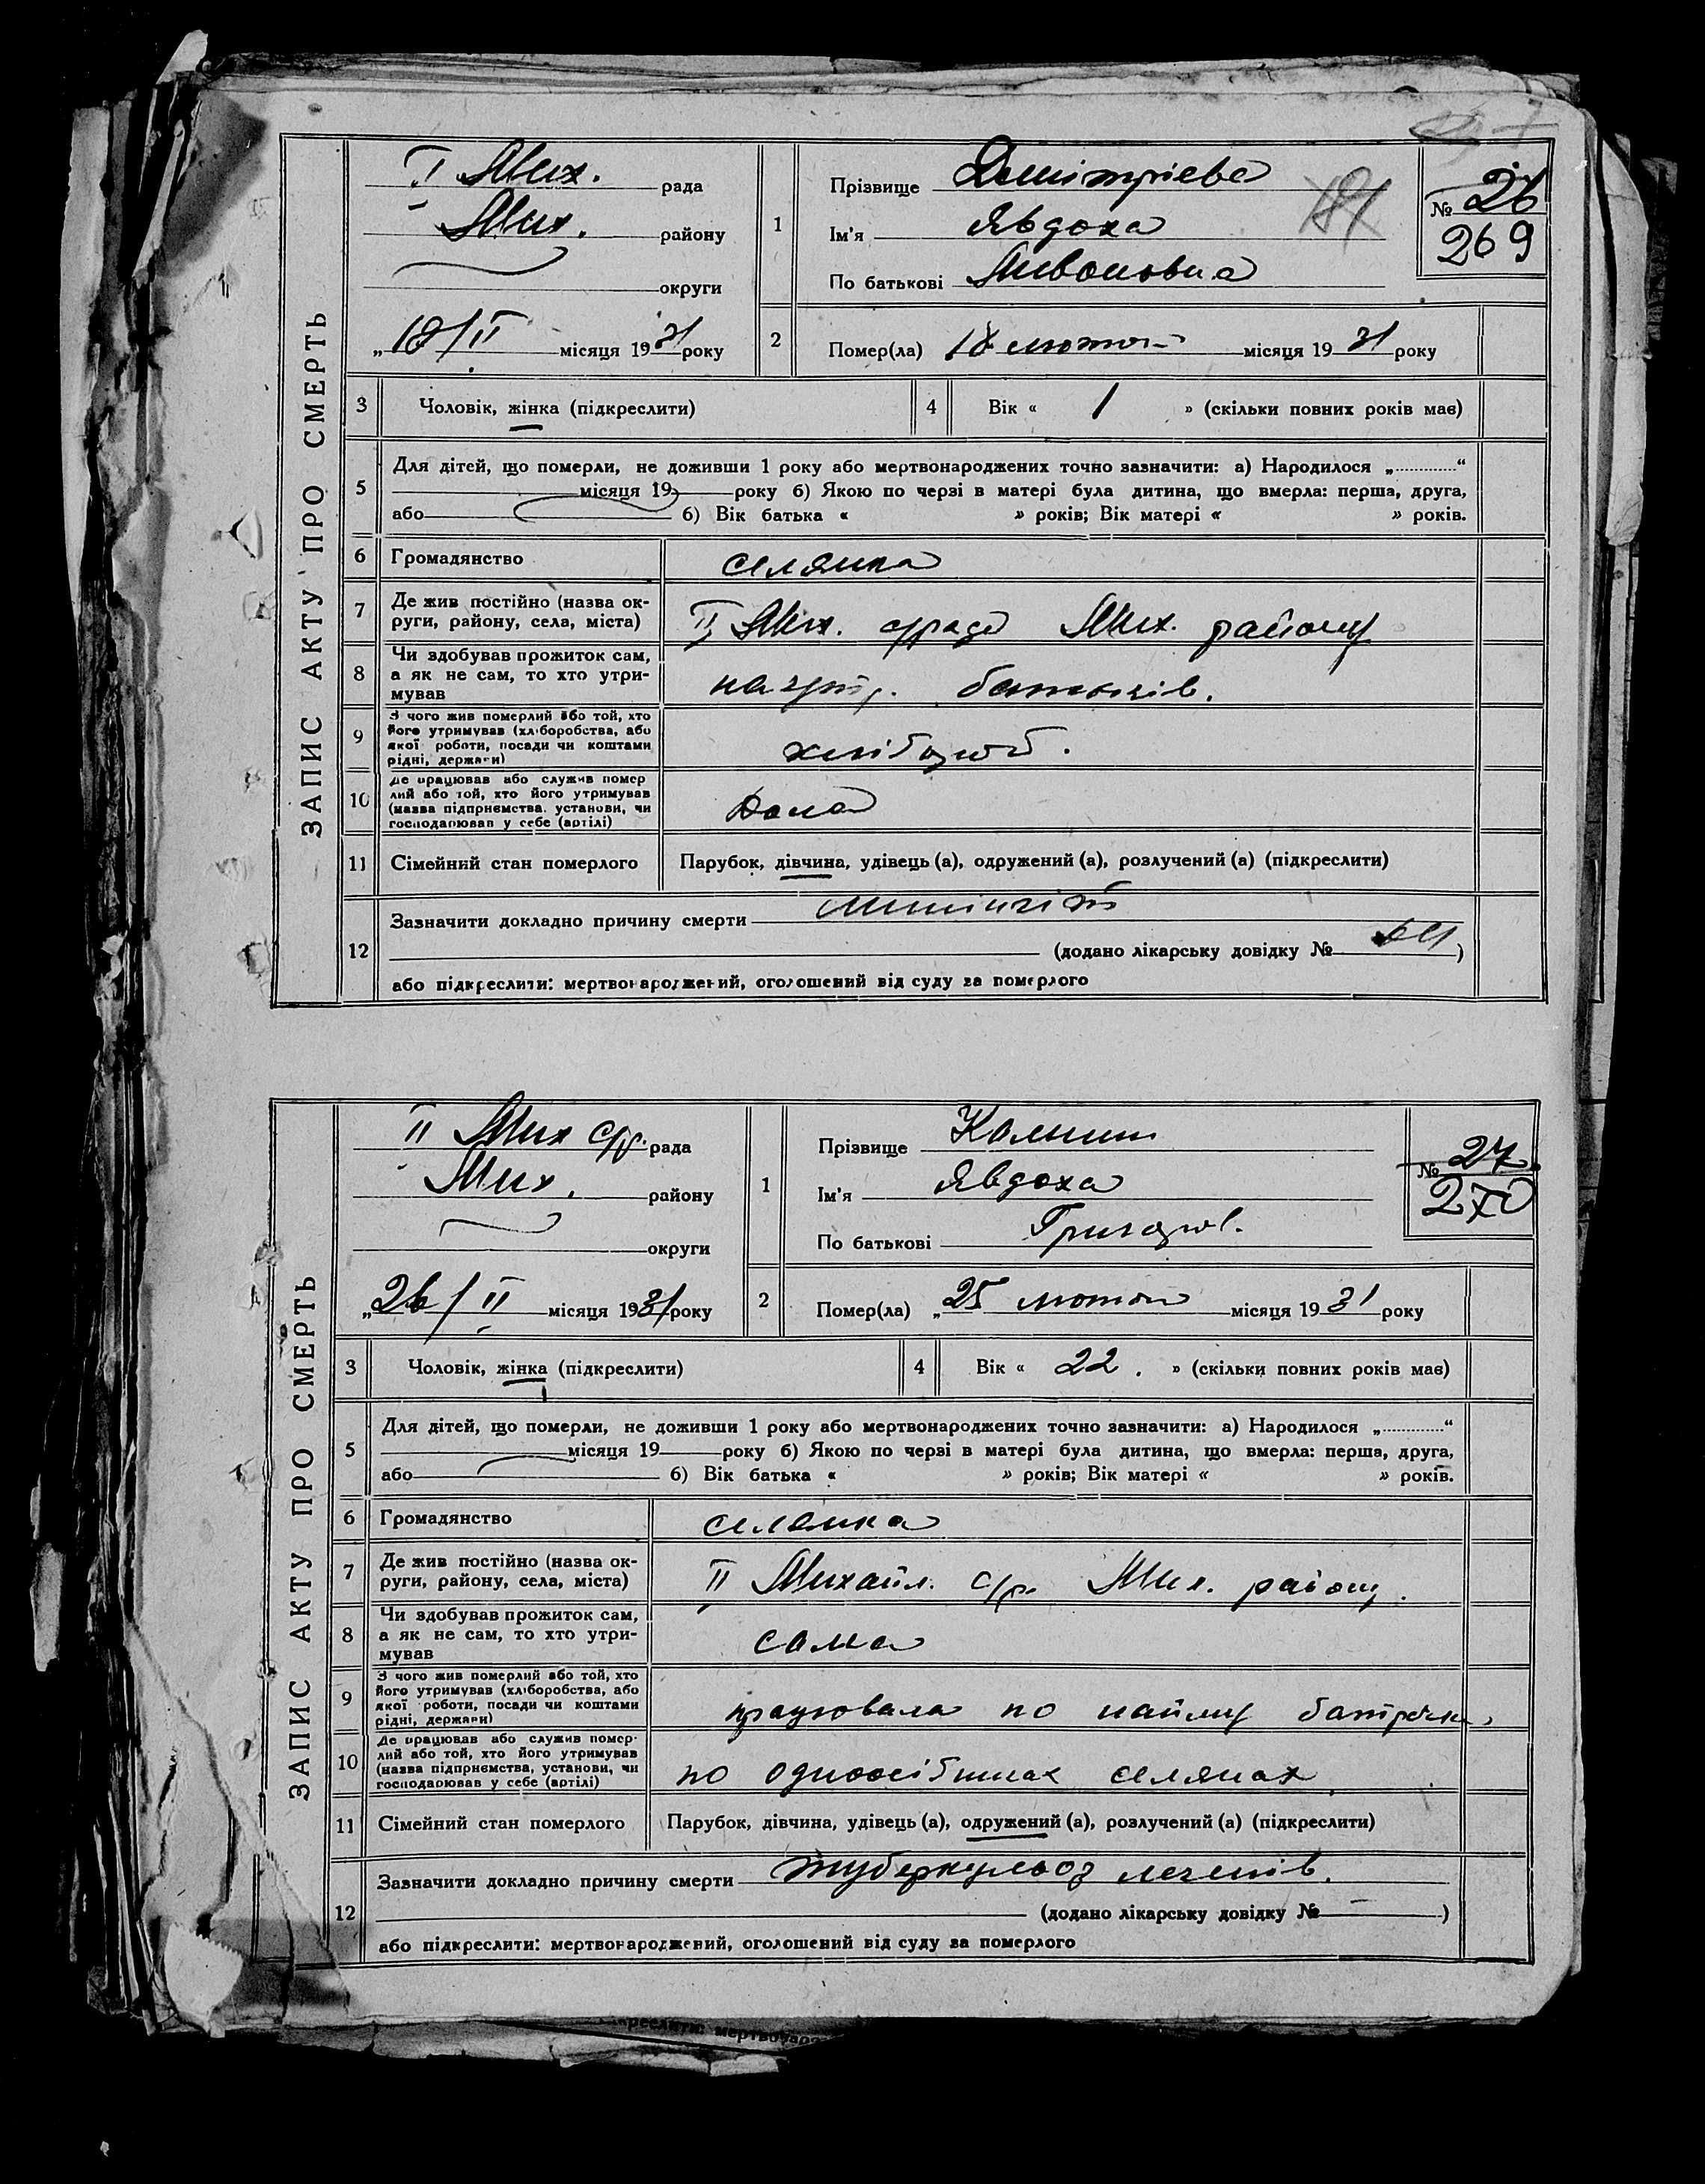 ЗАПИС АКТУ ПРО СМЕРТЬ
I Мих. рада
Мих. району
округи
„18/II місяця 1931 року
1
Прізвище Дмітріева
Ім'я Явдоха
По батькові
№ 26
269
2
Помер(ла) 18 лютого місяця 1931 року
3 Чоловік, жінка (підкреслити)
4 Вік « 1 » (скільки повних років має)
5
Для дітей, що померли, не доживши 1 року або мертвонароджених точно зазначити: а) Народилося „............“
місяця 19 року б) Якою по черзі в матері була дитина, що вмерла: перша, друга,
або б) Вік батька « » років; Вік матері « » років.
6 Громадянство селянка
7 Де жив постійно (назва ок-
руги, району, села, міста)
II Мих. с/рада Мих. району
8 Чи здобував прожиток сам,
а як не сам, то хто утри-
мував
на утр. батьків.
9 З чого жив померлий або той, хто
його утримував (хліборобства, або
якої роботи, посади чи коштами
рідні, держави)
хлібороб.
10 Де працював або служив помер
лий або той, хто його утримував
(назва підприємства, установи, чи
господарював у себе (артілі)
дома
11 Сімейний стан померлого Парубок, дівчина, удівець (а), одружений (а), розлучений (а) (підкреслити)
12
Зазначити докладно причину смерти менінгіт
(додано лікарську довідку № )
або підкреслити: мертвонароджений, оголошений від суду за померлого
ЗАПИС АКТУ ПРО СМЕРТЬ
II Мих с/р. рада
Мих. району
округи
„26/II місяця 1931 року
1
Прізвище
Ім'я Явдоха
По батькові Григоров.
№ 27
270
2
Помер(ла) „25 лютого місяця 1931 року
3 Чоловік, жінка (підкреслити)
4 Вік « 22. » (скільки повних років має)
5
Для дітей, що померли, не доживши 1 року або мертвонароджених точно зазначити: а) Народилося „............“
місяця 19 року б) Якою по черзі в матері була дитина, що вмерла: перша, друга,
або б) Вік батька « » років; Вік матері « » років.
6 Громадянство селянка
7 Де жив постійно (назва ок-
руги, району, села, міста)
II Михайл. с/р. Мих. району.
8 Чи здобував прожиток сам,
а як не сам, то хто утри-
мував
сама
9 З чого жив померлий або той, хто
його утримував (хліборобства, або
якої роботи, посади чи коштами
рідні, держави)
працювала по найму батрачка,
10 Де працював або служив помер-
лий або той, хто його утримував
(назва підприємства, установи, чи
господарював у себе (артілі)
по одноосібних селянах
11 Сімейний стан померлого Парубок, дівчина, удівець (а), одружений (а), розлучений (а) (підкреслити)
12
Зазначити докладно причину смерти туберкульоз легенів.
(додано лікарську довідку № — )
або підкреслити: мертвонароджений, оголошений від суду за померлого